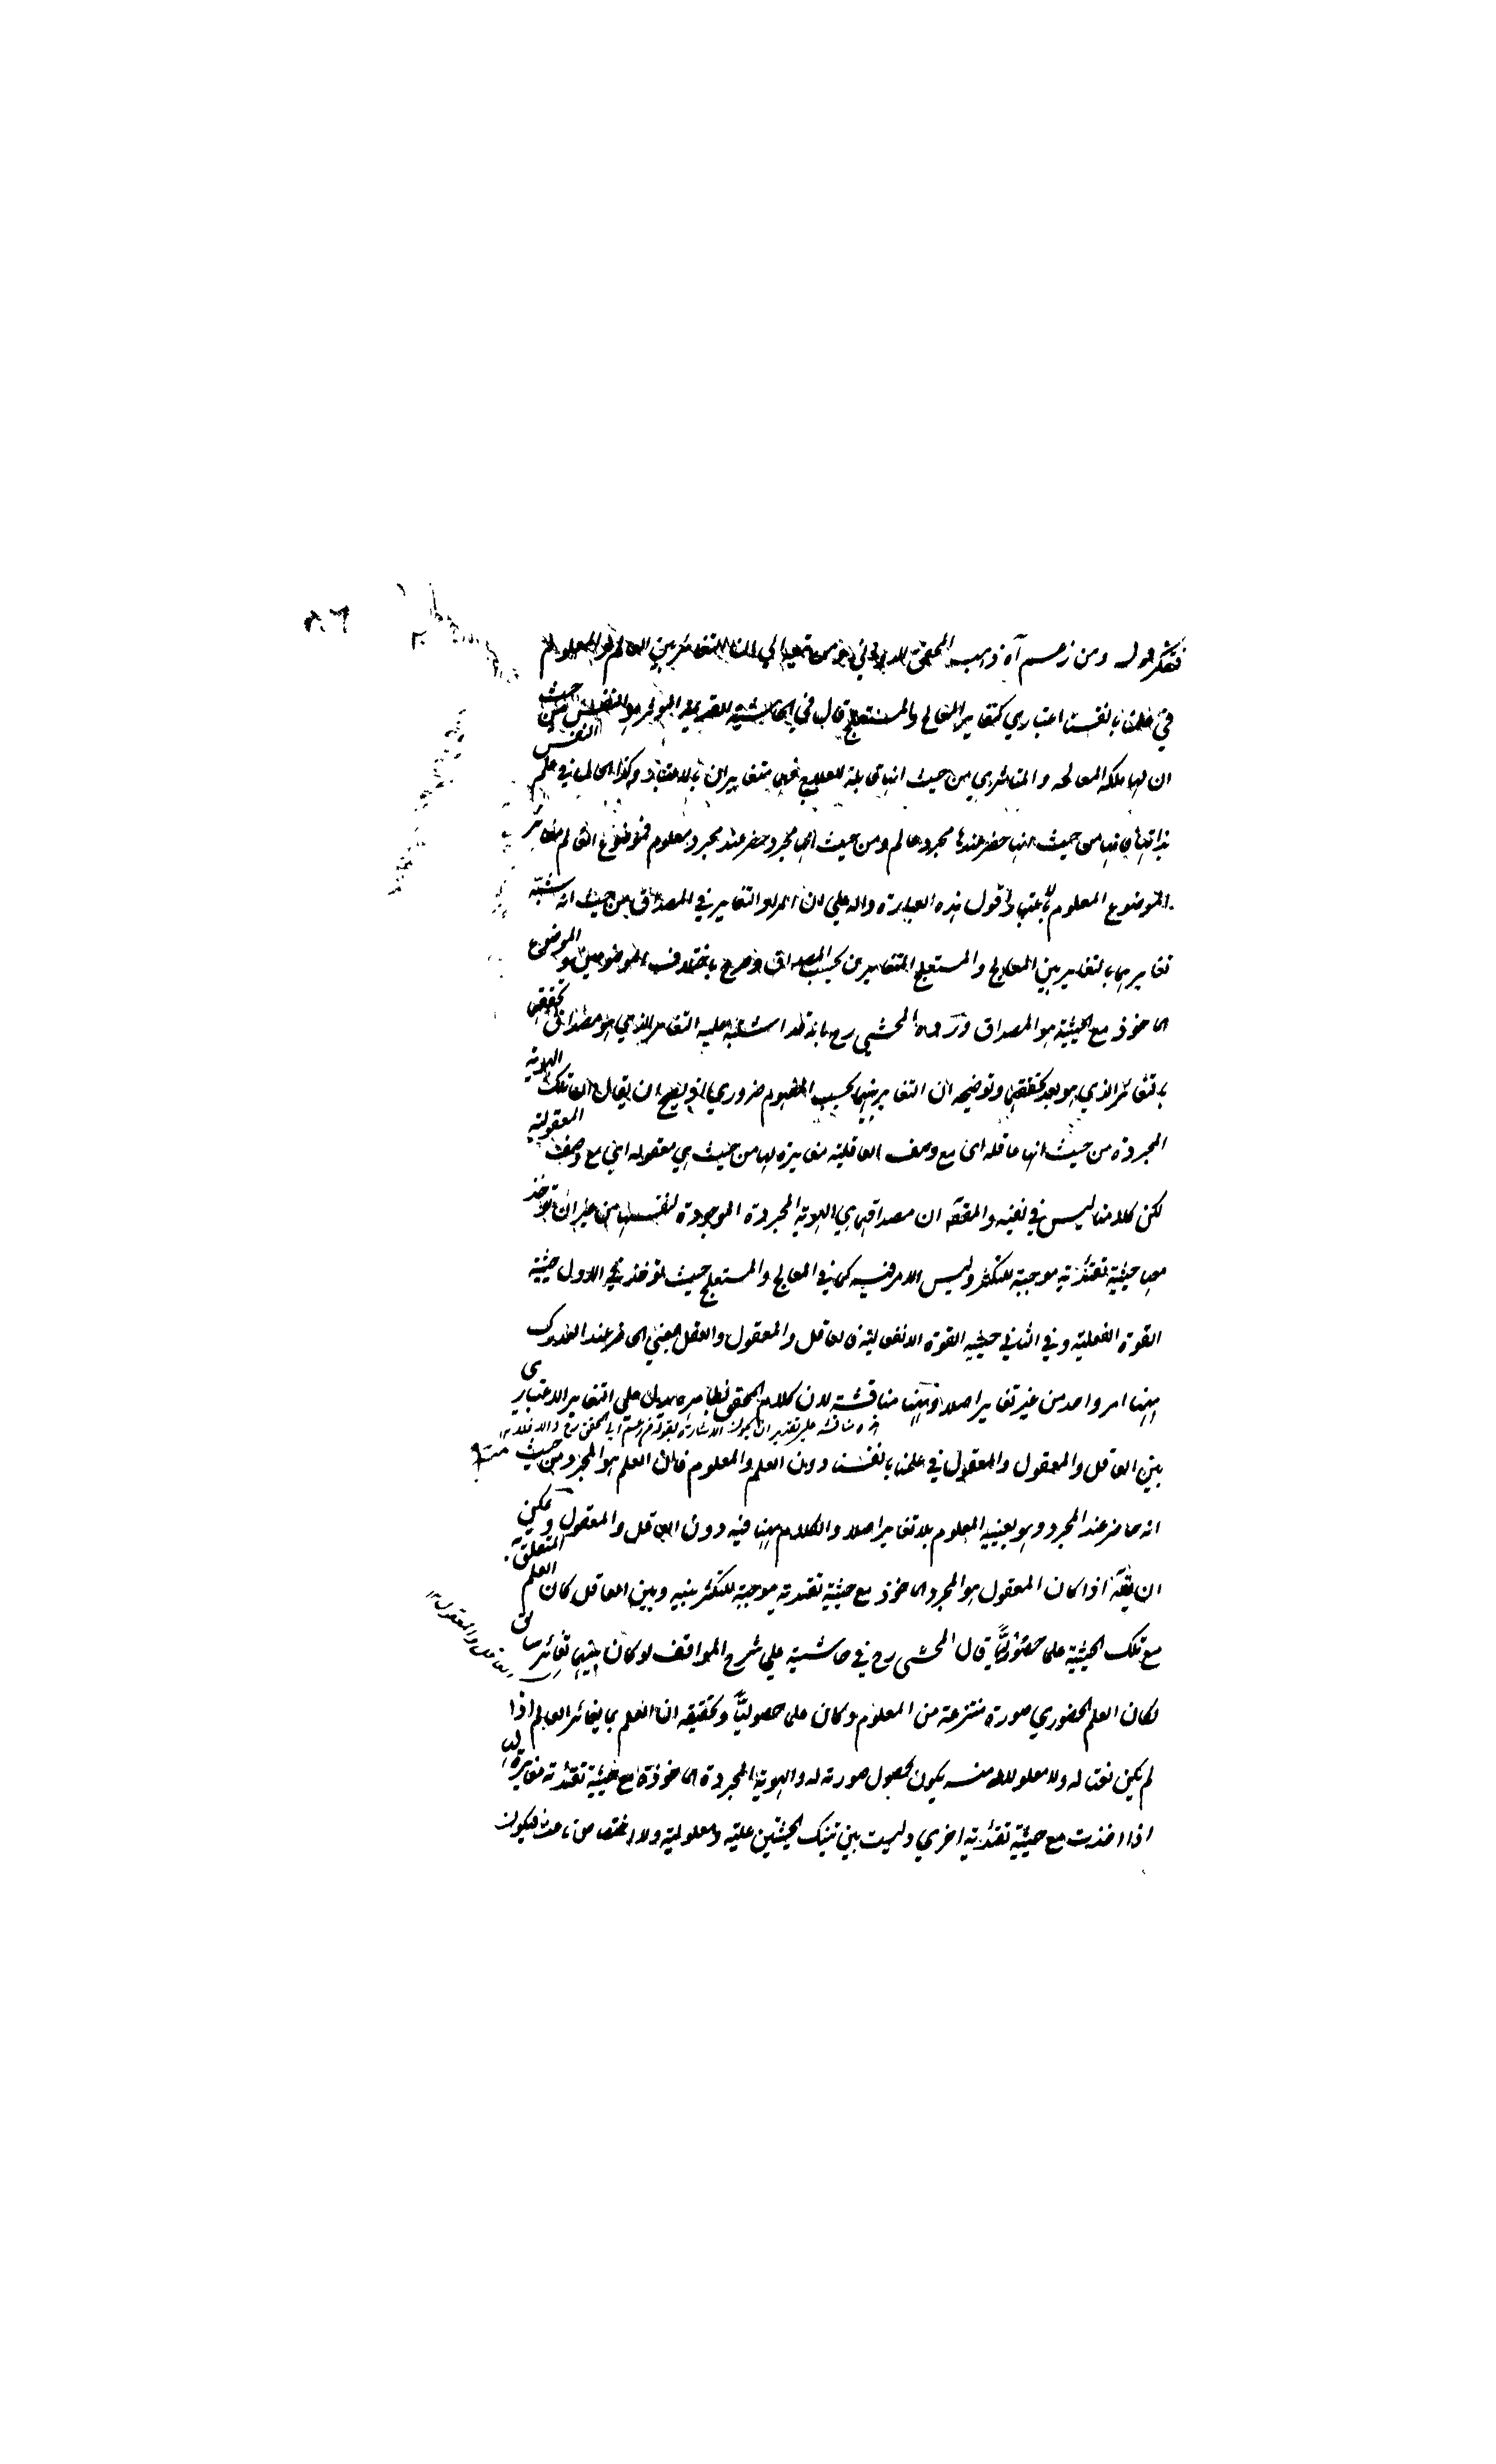 فتفكر قوله ومن زعم آه ذهب المحقق الدواني ومن تبعه الى ان التغاير بين العالم والمعلوم
في علمنا بانفسنا اعتباري كتغاير المعالج والمستعلج قال في الحاشية القديمة النفس من حيث
ان لها ملكة المعالجة والمتاثر هي من حيث انها قابلة للعلاج فهي متغايران بالاعتبار وكذا الحال في علم النفس
بذاتها فانها من حيث انها حضر عندها مجرد عالم ومن حيث انها مجرد حضر عند مجرد معلوم فموضوع العالم مغاير
الموضوع المعلوم بالاعتبار اقول هذه العبارة دالة على ان المراد التغاير في المصداق من حيث انه شبه
تغايرهما بالتغاير بين المعالج والمستعلج المتغايرين بحسب المصداق وصرح باختلاف الموضوعين والموضوع
الماخوذ مع الحيثية هو المصداق ورده المحشي رح بانه قد اشتبه عليه التغاير الذي هو مصداق تحققهما
بالتغاير الذي هو بعد تحققهما وتوضيحه ان التغاير بينهما بحسب المفهوم ضروري اذ يصح ان يقال ان تلك الهوية
المجردة من حيث انها عاقلة اي مع وصف العاقلية مغايرة لها من حيث هي معقولة اي مع وصف المعقولية
لكن كلامنا ليس في نفيه والمقصد ان مصداقهما هي الهوية المجردة الموجودة لنفسها من غير ان تؤخذ
معها حيثية تقييدية موجبة للتكثر وليس الامر فيه كما في المعالج والمستعلج حيث تؤخذ في الاول حيثية
القوة الفعلية وفي الثاني حيثية القوة الانفعالية فالعاقل والمعقول والعقل بمعنى الحاضر عند المدرك
ههنا امر واحد من غير تغاير اصلا وههنا مناقشة لان كلام المحقق بظاهره يدل على التغاير الاعتباري
بين العاقل والمعقول في علمنا بانفسنا دون العلم والمعلوم فان العلم هو المجرد من حيث
انه حاضر عند المجرد وهو بعينه المعلوم بلا تغاير اصلا والكلام ههنا فيه دون العاقل والمعقول ويمكن
ان يقال اذا كان المعقول هو المجرد الماخوذ مع حيثية تقييدية موجبة للتكثر بينه وبين العاقل كان العلم المتعلق
مع تلك الحيثية علما حضوريا قال المحشي رح في حاشيته على شرح المواقف لو كان بينهما تغاير سابق
لكان العلم الحضوري صورة منتزعة من المعلوم وكان علما حصوليا وتحقيقه ان العلم بما يغاير العالم اذا
لم يكن نعتا له ولا معلولا له منه يكون بحصول صورته له والهوية المجردة الماخوذة مع حيثية تقييدية مغايرة لها
اذا اخذت مع حيثية تقييدية اخرى وليست بين تينك الحيثيتين علية ومعلولية ولا اختصاص ناعت فيكون
العاقل والمعقول